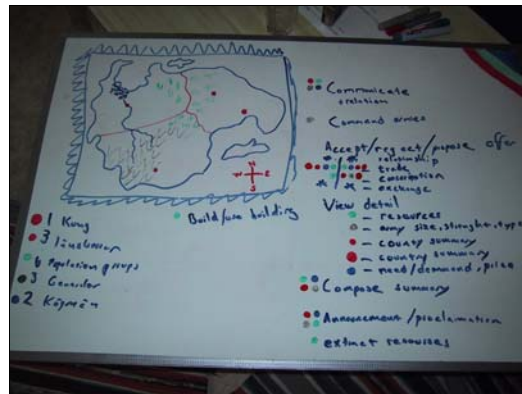 N
W E
S
Build/use building
1 Kung
3 länsherrar
6 Population groups
3 Generaler
2 Köpmän
Communicate
relation
Command armies
Accept/reject/propose offer
relationship
trade
conscription
exchange
View detail
- resources
- army size, strenght, type
- county summary
- country summary
- need/demand, price
Compose summary
Announcement/proclamation
extract resources